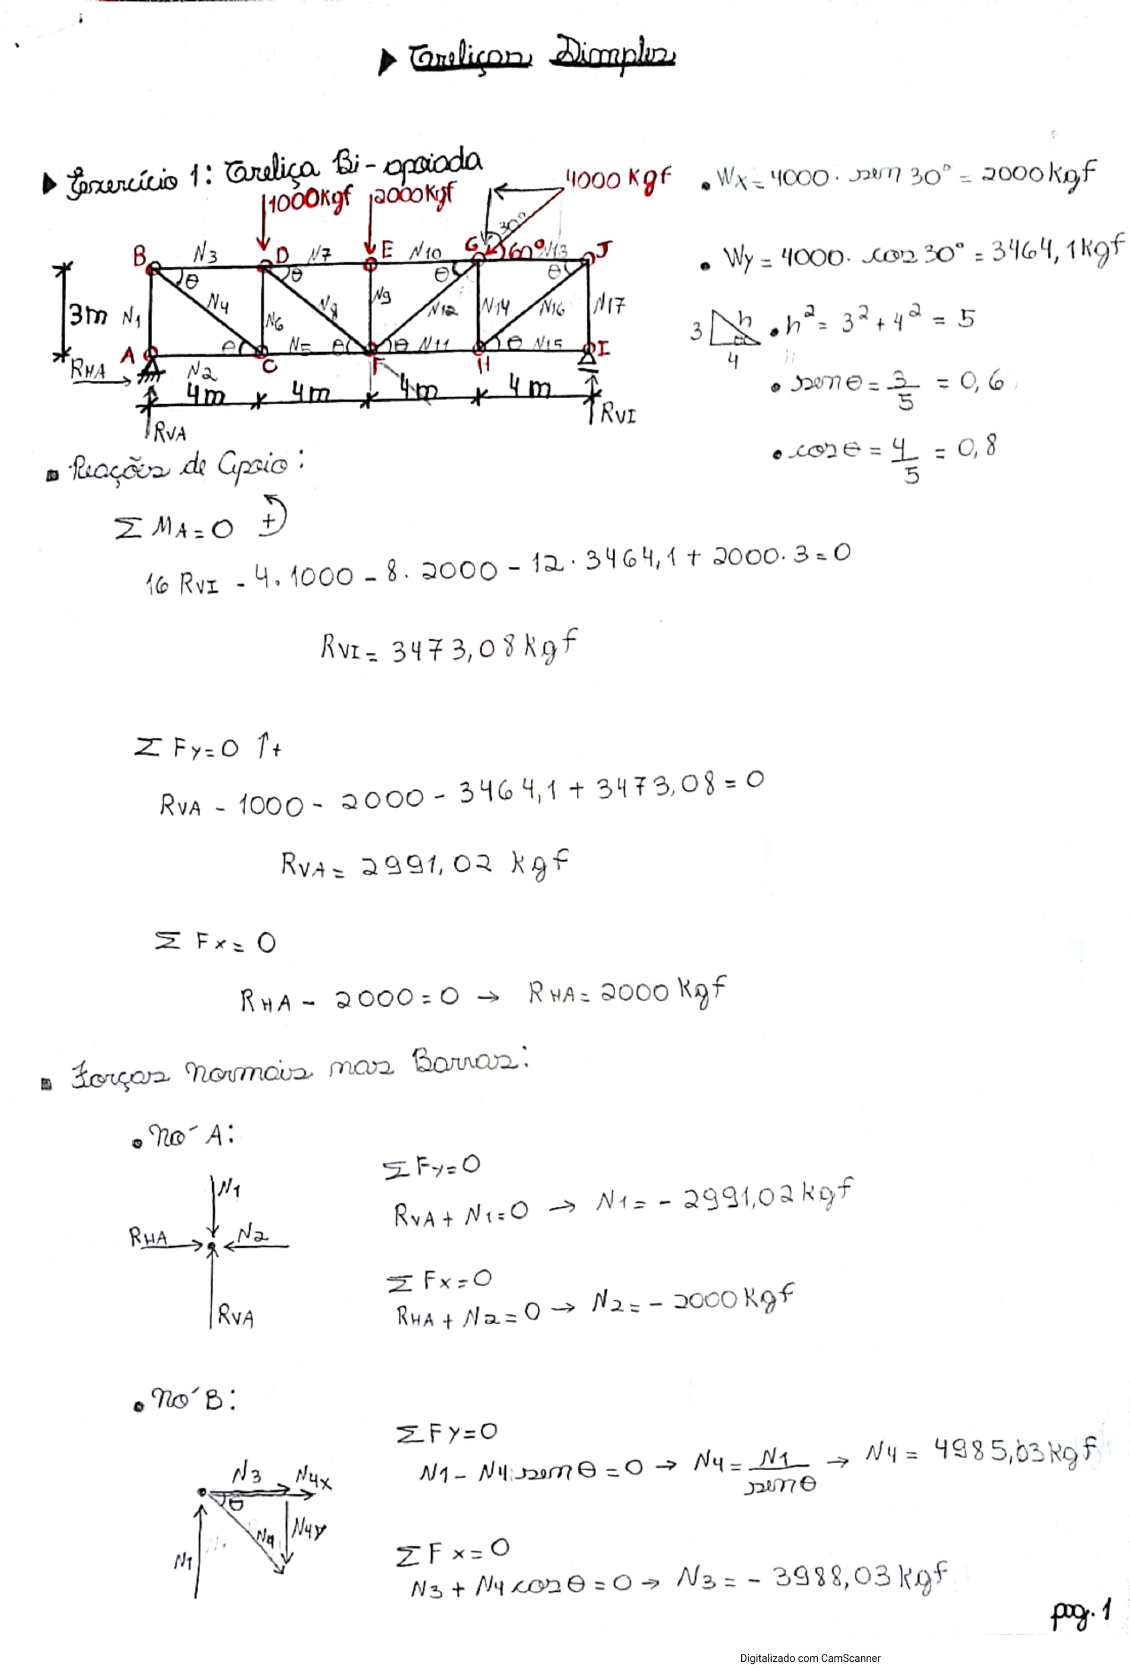 ▶ Treliças Simples
▶ Exercício 1: Treliça Bi-apoiada
1000Kgf 2000Kgf 4000 Kgf
• Wx = 4000 · sen 30° = 2000 kgf
• Wy = 4000 · cos 30° = 3464,1 kgf
30° 60°
B N3 D N7 E N10 G N13 J
θ θ θ θ
3m N1 N4 N6 N8 N9 N12 N14 N16 N17
A θ N5 θ θ N11 θ N15 I
RHA N2 C F H
4m 4m 4m 4m
RVA RVI
3 h • h² = 3² + 4² = 5
4
• sen θ = 3/5 = 0,6
• cos θ = 4/5 = 0,8
▪ Reações de Apoio:
Σ MA = 0 +
16 RVI - 4 · 1000 - 8 · 2000 - 12 · 3464,1 + 2000 · 3 = 0
RVI = 3473,08 kgf
Σ Fy = 0 ↑+
RVA - 1000 - 2000 - 3464,1 + 3473,08 = 0
RVA = 2991,02 kgf
Σ Fx = 0
RHA - 2000 = 0 → RHA = 2000 Kgf
▪ Forças normais nas Barras:
• Nó A:
N1
RHA N2
RVA
Σ Fy = 0
RVA + N1 = 0 → N1 = - 2991,02 kgf
Σ Fx = 0
RHA + N2 = 0 → N2 = - 2000 Kgf
• Nó B:
N3 N4x
θ
N4 N4y
N1
Σ Fy = 0
N1 - N4 · sen θ = 0 → N4 = N1/sen θ → N4 = 4985,03 kgf
Σ Fx = 0
N3 + N4 cos θ = 0 → N3 = - 3988,03 kgf
pag. 1
Digitalizado com CamScanner